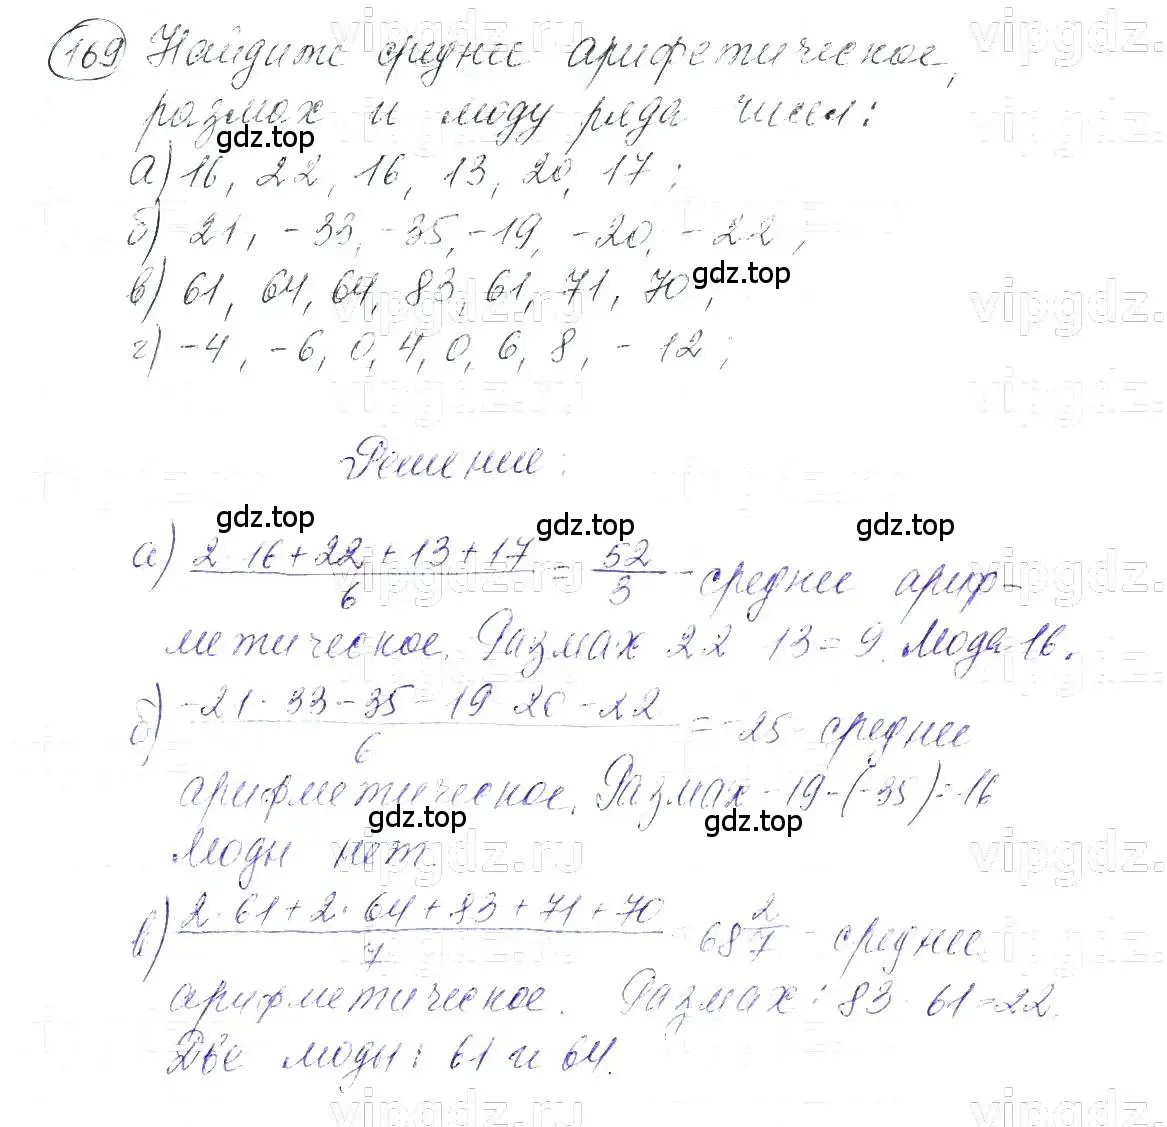 169 Найдите среднее арифметическое,
размах и моду ряда чисел:
а) 16, 22, 16, 13, 20, 17;
б) -21, -33, -35, -19, -20, -22;
в) 61, 64, 64, 83, 61, 71, 70;
г) -4, -6, 0, 4, 0, 6, 8, -12;
Решение:
а) (2·16+22+13+17)/6 = 52/3 - среднее ариф-
метическое. Размах 22 13=9. Мода 16.
б) (-21-33-35-19-20-22)/6 = -25 - среднее
арифметическое. Размах -19-(-35)=16
Моды нет.
в) (2·61+2·64+83+71+70)/7 68 2/7 - среднее
арифметическое. Размах: 83-61=22.
Две моды: 61 и 64.
gdz.top
gdz.top
gdz.top
gdz.top
gdz.top
gdz.top
gdz.top
vipgdz.ru